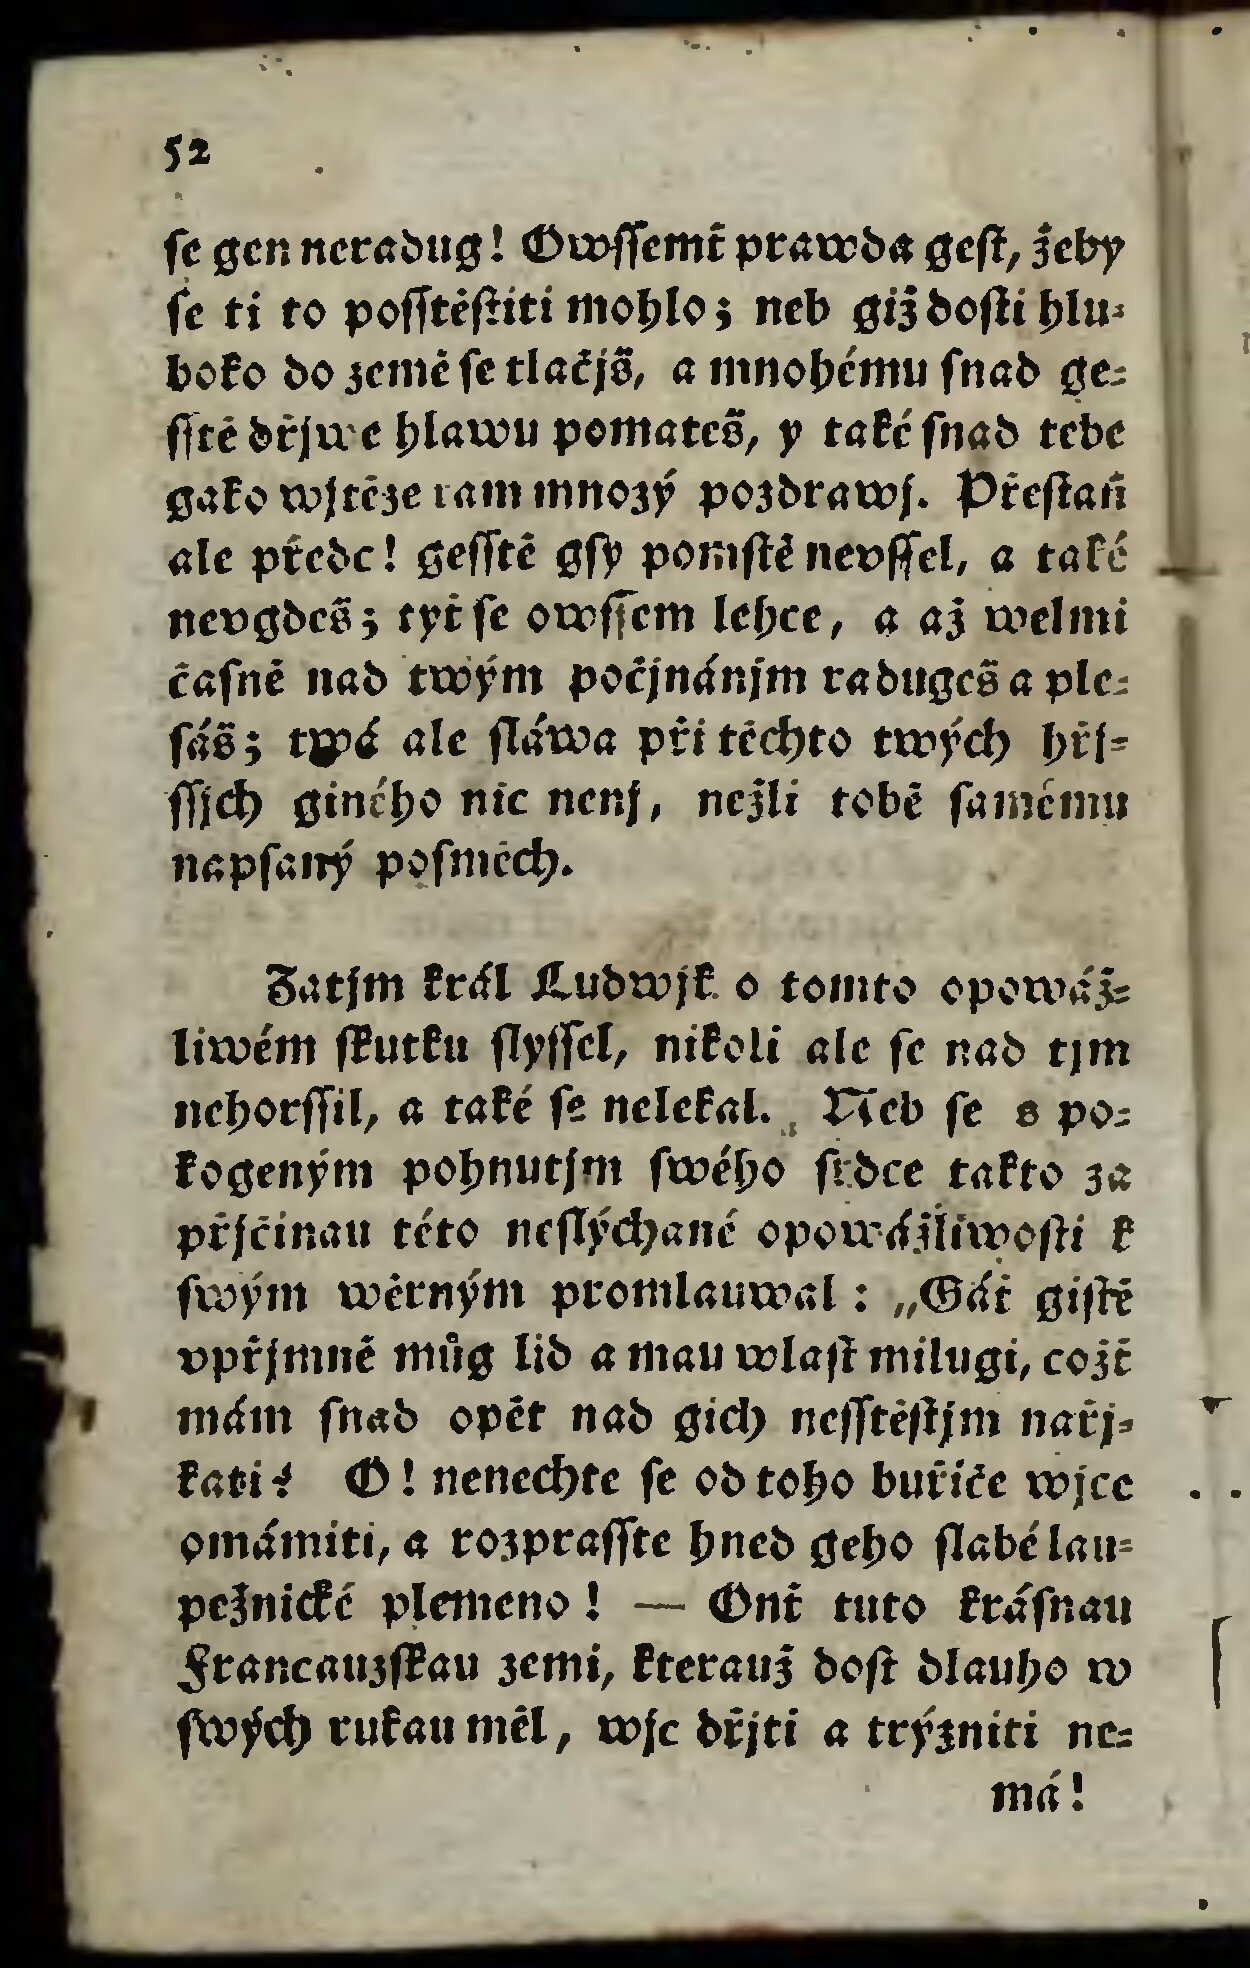 52
ſe gen neradug! Owſſemť prawda geſt, žeby
ſe ti to poſſtěſtiti mohlo; neb giž doſti hlu⸗
boko do země ſe tlačjš, a mnohému ſnad ge⸗
ſſtě dřjwe hlawu pomateš, y také ſnad tebe
gako wjtěze tam mnozý pozdrawj. Přeſtaň
ale předc! geſſtě gſy pomſtě nevſſel, a také
nevgdeš; tyť ſe owſſem lehce, a až welmi
čaſně nad twým počjnánjm radugeš a ple⸗
ſáš; twá ale ſláwa při těchto twých hřj⸗
ſſjch giného nic nenj, nežli tobě ſamému
napſaný poſměch.
Zatjm král Ludwjk o tomto opowáž⸗
liwém ſkutku ſlyſſel, nikoli ale ſe nad tjm
nehorſſil, a také ſe nelekal. Neb ſe s po⸗
kogeným pohnutjm ſwého ſrdce takto za
přjčinau této neſlýchané opowážliwoſti k
ſwým wěrným promlauwal: „Gáť giſtě
vpřjmně můg lid a mau wlaſť milugi, cožť
mám ſnad opět nad gich neſſtěſtjm nařj⸗
kati? O! nenechte ſe od toho buřiče wjce
omámiti, a rozpraſſte hned geho ſlabé lau⸗
pežnické plemeno! — Onť tuto kráſnau
Francauzſkau zemi, kterauž doſt dlauho w
ſwých rukau měl, wjc dřjti a trýzniti ne⸗
má!